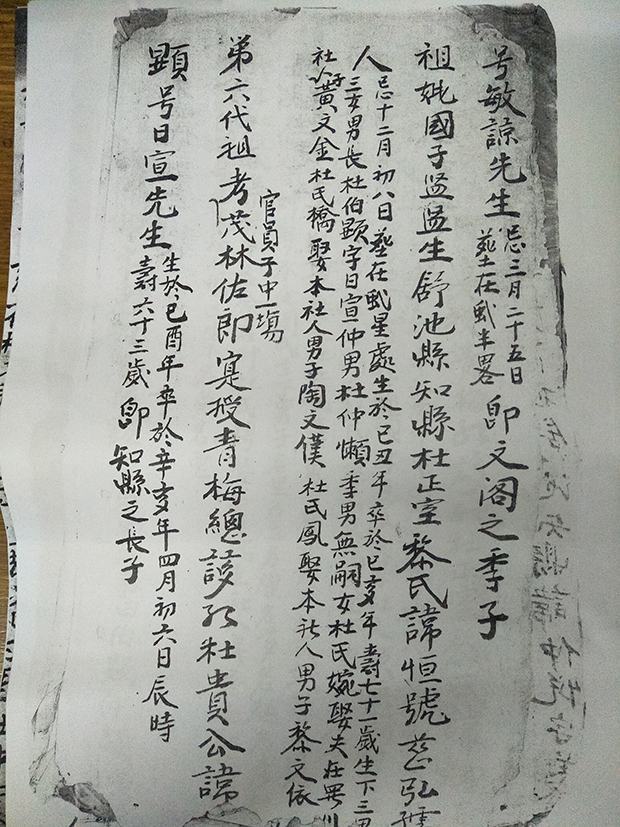 号敏諒先生忌三月二十五日即文阁之季子
葬在
祖妣國子监监生舒池縣知縣杜正室黎氏諱恒號慈
人忌十二月初八日葬在貳星處生於己丑年卒於己亥年壽七十一歲生下三男
三女男長杜伯顕字日宣仲男杜仲懶季男無嗣女杜氏婉娶夫在
社人黄文金杜氏橋娶本社人男子陶文僅杜氏鳳娶本社人男子黎文依
官員子中一塲
第六代祖考茂林佐郎寔授青梅總杜貴公諱
顕号日宣先生生於己酉年卒於辛亥年四月初六日辰時
壽六十三歲即知縣之長子